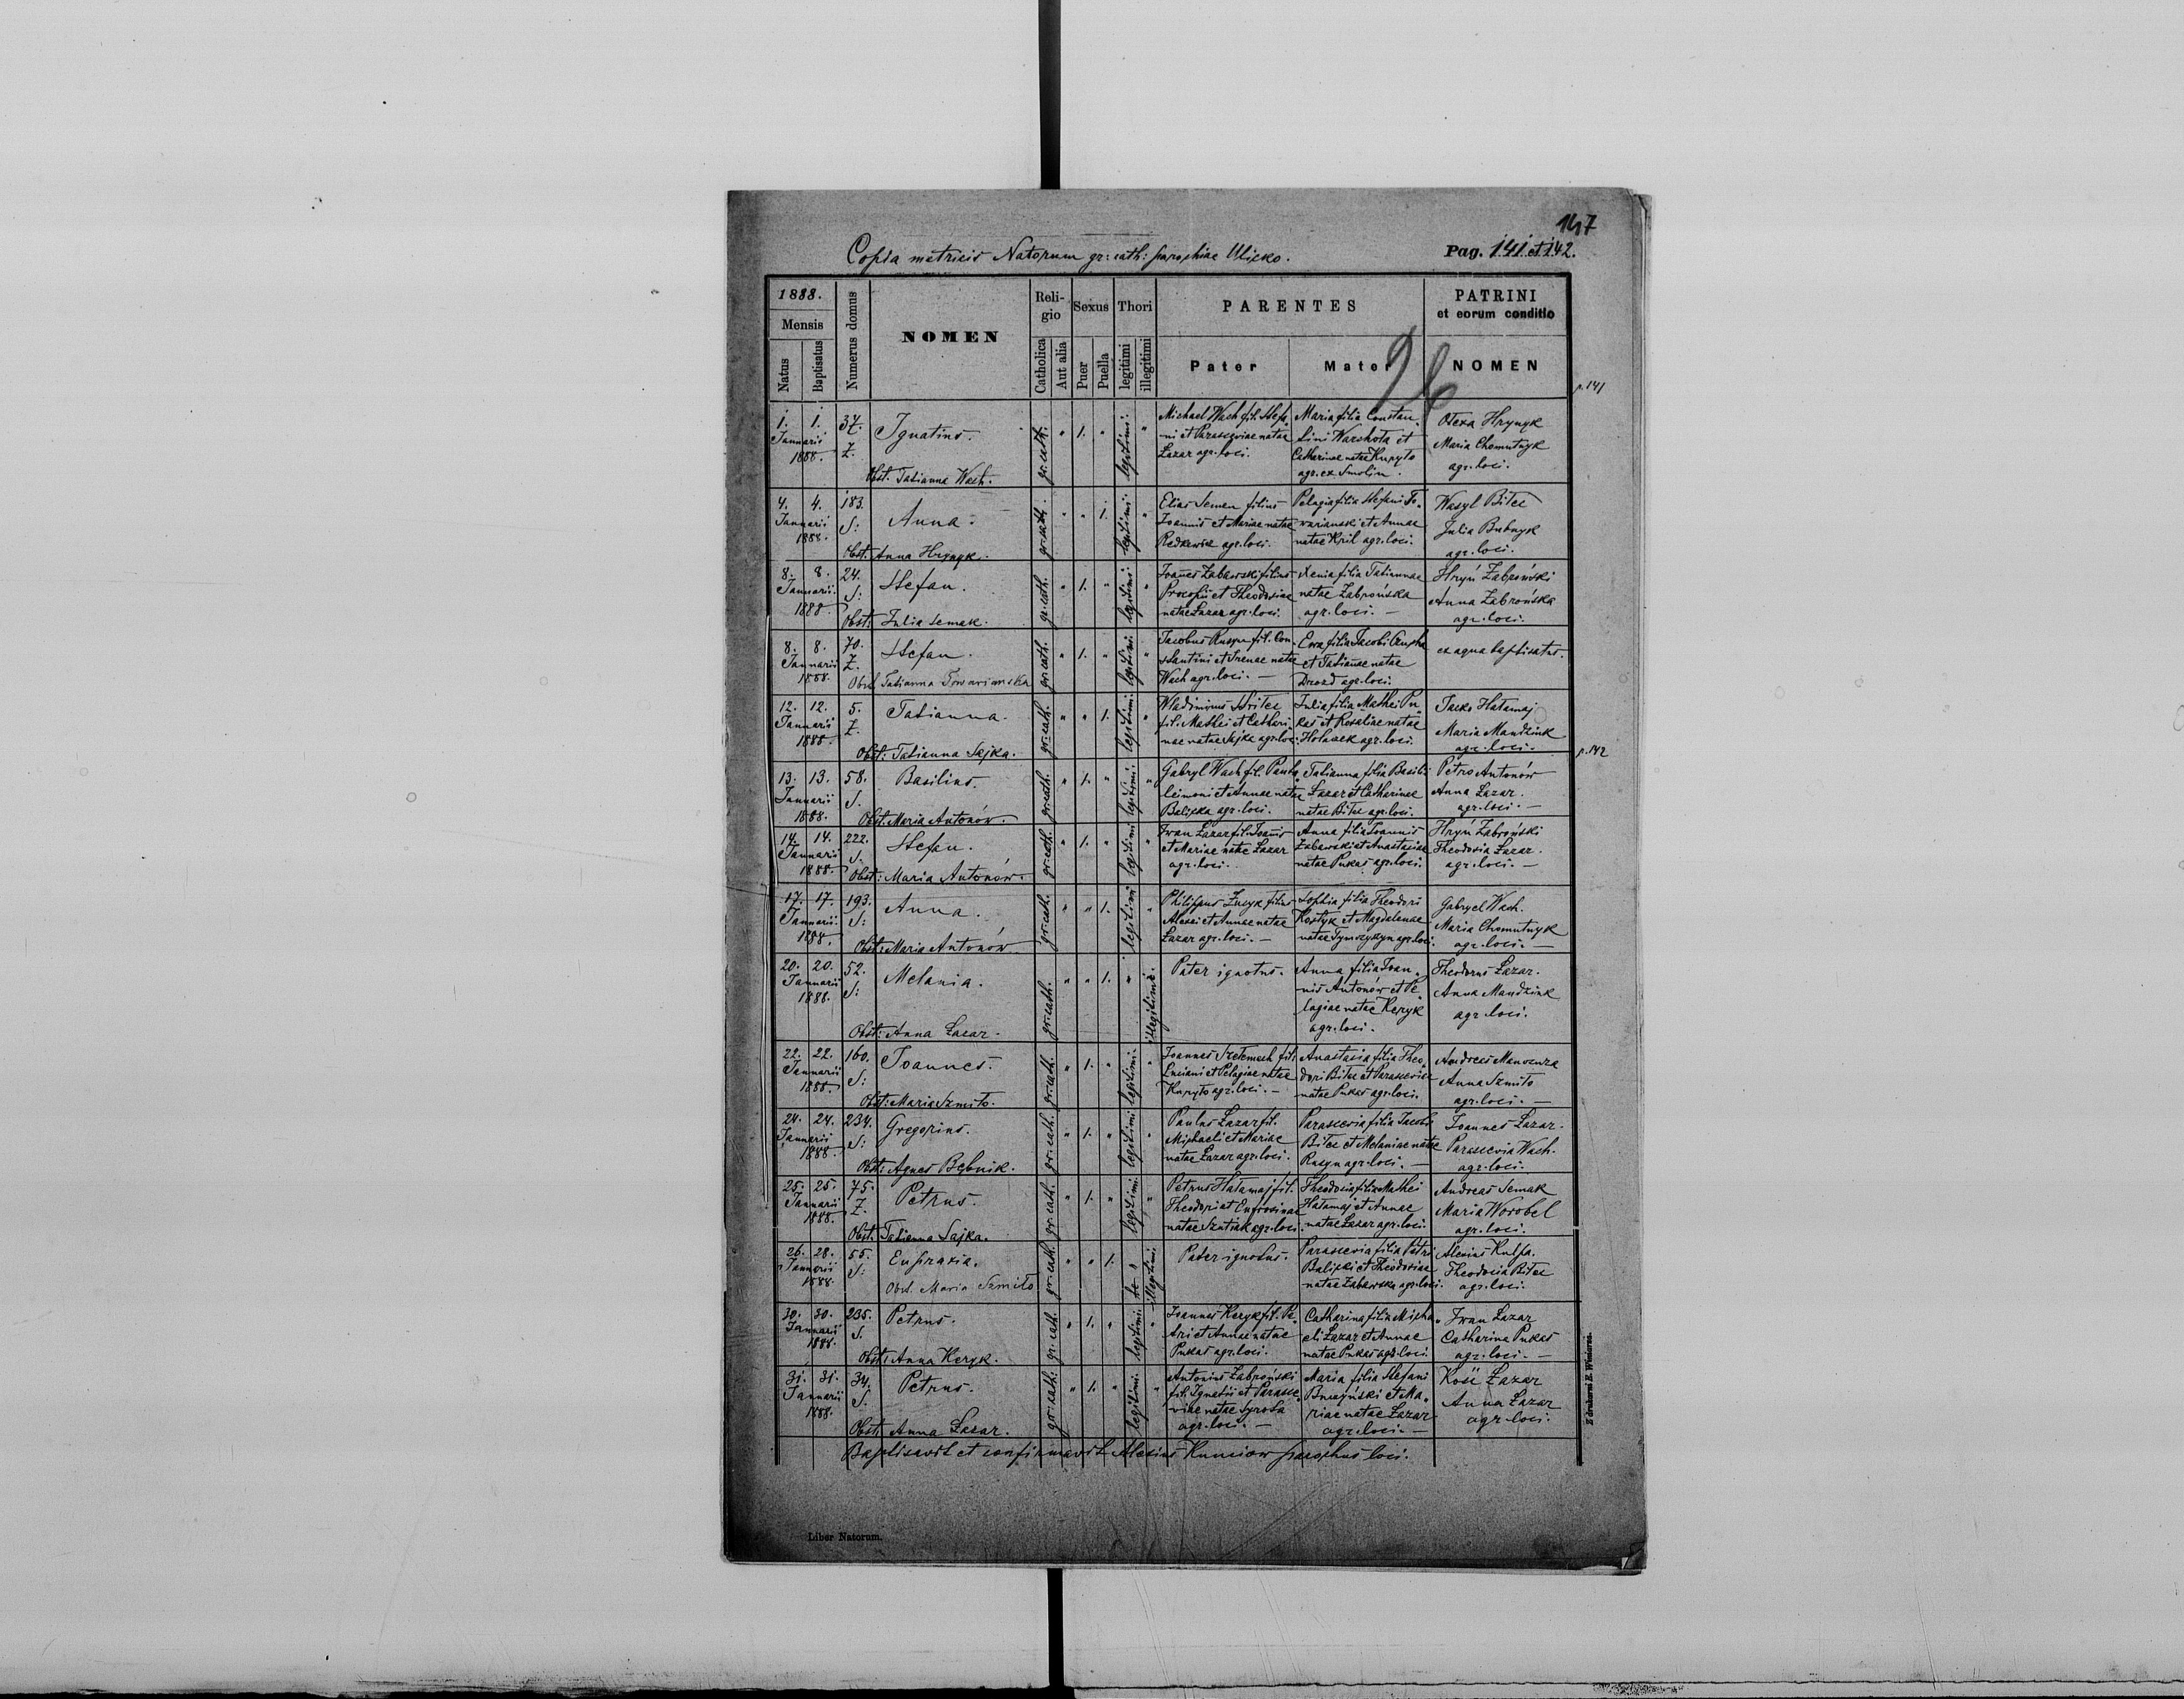 147
Copia metricis Natorum gr: cath: parochiae Ulicko.
Pag. 141 et 142.
1888.
Mensis
Natus
Baptisatus
Numerus domus
NOMEN
Reli-
gio
Catholica
Aut alia
Sexus
Puer
Puella
Thori
legitimi
illegitimi
PARENTES
Pater
Mater
PATRINI
et eorum conditio
NOMEN
96
p. 141
1. 1. 37.
Januarii Z.
1888.
Ignatius.
Obst. Tatianna Wach.
gr: cath. " 1. " legitimi: "
Michael Wach fil. Stefa
ni et Parasceviae natae
Lazar agr. loci.
Maria filia Constan
tini Warchota et
Catharinae natae Kuryło
agr. ex Smolin.
Olexa Hrynyk
Maria Chomutnyk
agr. loci.
4. 4. 183.
Januarii S:
1888.
Anna.
Obst. Anna Hrynyk.
gr: cath. " " 1. legitimi: "
Elias Semen filius
Joannis et Mariae natae
agr. loci.
Pelagia filia Stefani To
warianski et Annae
natae Kril agr. loci.
Wasyl Bitec
Julia Bubnyk
agr. loci.
8. 8. 24.
Januarii S:
1888.
Stefan.
Obst: Julia Semak.
gr: cath. " 1. " legitimi: "
Joannes Zabawski filius
Procopii et Theodosiae
natae Lazar agr. loci.
Xenia filia Tatiannae
natae Zabrońska
agr. loci. —
Hryń Zabroński
Anna Zabrońska
agr. loci.
8. 8. 70.
Januarii Z.
1888.
Stefan.
Obst. Tatianna Towarianska
gr: cath. " 1. " legitimi "
Jacobus Rusyn fil. Con
stantini et Irenae natae
Wach agr. loci. —
Eva filia Jacobi
et Tatiannae natae
Drozd agr. loci.
ex aqua baptisatus.
12. 12. 5.
Januarii Z.
1888.
Tatianna.
Obst: Tatianna Sajka.
gr: cath. " " 1. legitimi: "
Wladimirus Hritec
fil. Mathei et Cathari
nae natae Sajka agr. loci.
Julia filia Mathei Pu
kas et Rosaliae natae
Holaxek agr. loci.
Jacko Hałamaj
Maria Mandziuk
agr. loci.
p. 142
13. 13. 58.
Januarii S.
1888.
Basilius.
Obst. Maria Antonów.
gr: cath. " 1. " legitimi. "
Gabryl Wach fil. Panta
leimoni et Annae natae
Balicka agr. loci.
Tatianna filia Basilii
Lazar et Catharinae
natae Bitec agr. loci.
Petro Antonów
Anna Lazar.
agr. loci. —
14. 14. 222.
Januarii S.
1888.
Stefan.
Obst: Maria Antonów.
gr: cath. " 1. " legitimi "
Iwan Lazar fil. Joannis
et Mariae natae Lazar
agr. loci.
Anna filia Joannis
Zabawski et Anastasiae
natae Pukas agr. loci.
Hryń Zabroński
Theodosia Lazar.
agr. loci. —
17. 17. 193.
Januarii S:
1888.
Anna.
Obst: Maria Antonów
gr: cath. " " 1. legitimi "
Philippus filius
Alexei et Annae natae
Lazar agr. loci. —
Sophia filia Theodori
Kostyk et Magdalenae
natae agr. loci.
Gabryel Wach.
Maria Chomutnyk
agr. loci. —
20. 20. 52.
Januarii S:
1888.
Melania.
Obst: Anna Lazar.
gr: cath. " " 1. " illegitimi.
Pater ignotus.
Anna filia Joan
nis Antonów et Pe
lagiae natae Keryk
agr. loci.
Theodorus Lazar.
Anna Mandziuk
agr. loci.
22. 22. 160.
Januarii S:
1888.
Joannes.
Obst: Maria Szmiło.
gr: cath. " 1. " legitimi. "
Joannes Szełemech fil.
Luciani et Pelagiae natae
Kuryło agr. loci. —
Anastasia filia Theo
dori Bitec et Parasceviae
natae Pukas agr. loci.
Andreas
Anna Szmiło
agr. loci. —
24. 24. 234.
Januarii S:
1888.
Gregorius.
Obst: Agnes Bębnik.
gr: cath. " 1. " legitimi "
Paulus Lazar fil.
Michaeli et Mariae
natae Lazar agr. loci.
Parascevia filia Jacobi
Bitec et Melaniae natae
Rusyn agr. loci. —
Joannes Lazar.
Parascevia Wach.
agr. loci.
25. 25. 75.
Januarii Z.
1888.
Petrus.
Obst. Tatianna Sajka.
gr: cath. " 1. " legitimi. "
Petrus Hałamaj fil.
Theodori et Eufrosinae
natae Szutiak agr. loci.
Theodosia filia Mathei
Hałamaj et Annae
natae Lazar agr. loci.
Andreas Semak
Maria Worobel
agr. loci.
26. 28. 55.
Januarii S:
1888.
Eupraxia.
Obst. Maria Szmiło
gr: cath. " " 1. illegitimi.
Pater ignotus.
Parascevia filia Petri
Balicki et Theodosiae
natae Zabawska agr. loci.
Alexius Kulpa.
Theodosia Bitec
agr. loci.
30. 30. 235.
Januarii S.
1888.
Petrus.
Obst: Anna Keryk.
gr: cath. " 1. " legitimi: "
Joannes Keryk fil. Pe
tri et Annae natae
Pukas agr. loci.
Catharina filia Micha
eli Lazar et Annae
natae Pukas agr. loci.
Iwan Lazar
Catharina Pukas
agr. loci. —
31. 31. 34.
Januarii S.
1888.
Petrus.
Obst: Anna Lazar.
gr: cath: " 1. " legitimi. "
Antonius Zabroński
fil. Ignatii et Parasce
viae natae Syrota
agr. loci. —
Maria filia Stefani
Buczyński et Ma
riae natae Lazar
agr. loci. —
Kość Lazar
Anna Lazar
agr. loci.
Baptisavit et confirmavit Alexius Kunciow parochus loci.
Z drukarni E. Winiarza.
Liber Natorum.